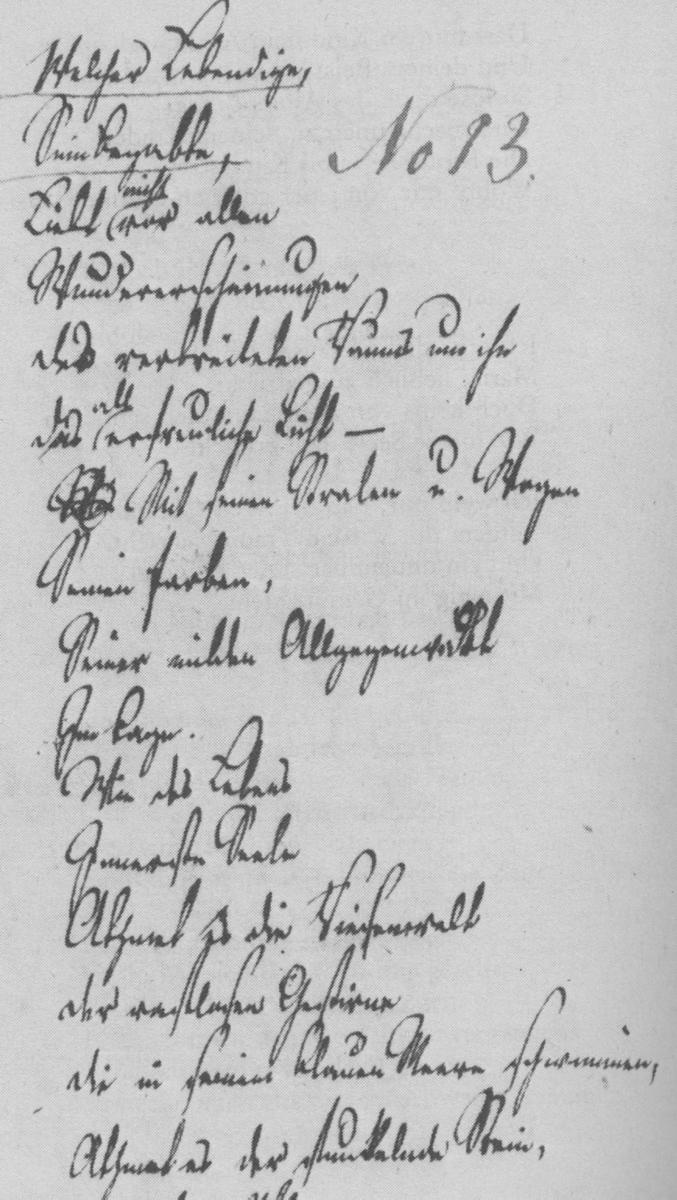 Welcher Lebendige,
Sinnbegabte,
No 13.
Liebt nicht vor allen
Wundererscheinungen
des verbreiteten Raums um ihn
das allerfreuliche Licht –
Mit seinen Stralen u. Wogen
Seinen Farben,
Seiner milden Allgegenwart
Im Tage.
Wie des Lebens
Innerste Seele
Athmet es die Riesenwelt
der rastlosen Gestirne
die in seinem blauen Meere schwimmen,
Athmet es der funkelnde Stein,